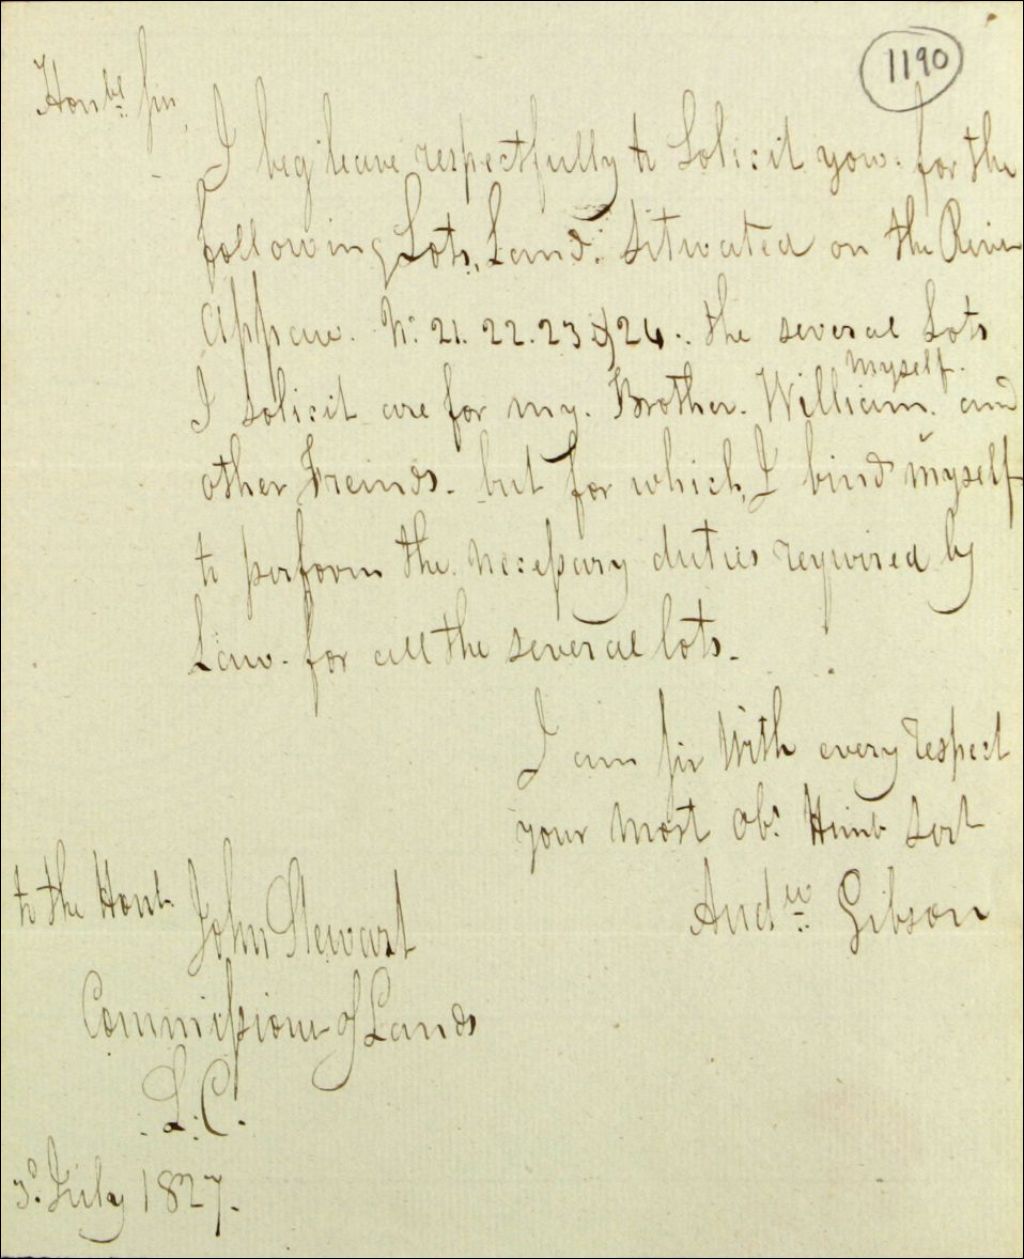 1190
Honbl Sir,
I beg leave respectfully to Solicit you. for the
following Lots, Land. Situated on the River
Appaw. N. 21. 22. 23 & 24. the several Lots
myself.
I solicit are for my. Brother. William. and
other Freinds. but for which, I bind myself
to perform the. necessary duties required by
Law. for all the several lots.
I am Sir With every respect
your most Obt Humb Sert
Andw Gibson
to the Honb.
John Stewart
Commissioner of Lands
L. C.
July 1827.